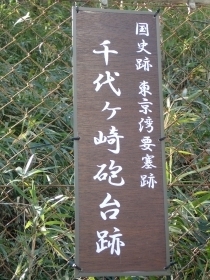 国史跡 東京湾要塞跡
千代ヶ崎砲台跡